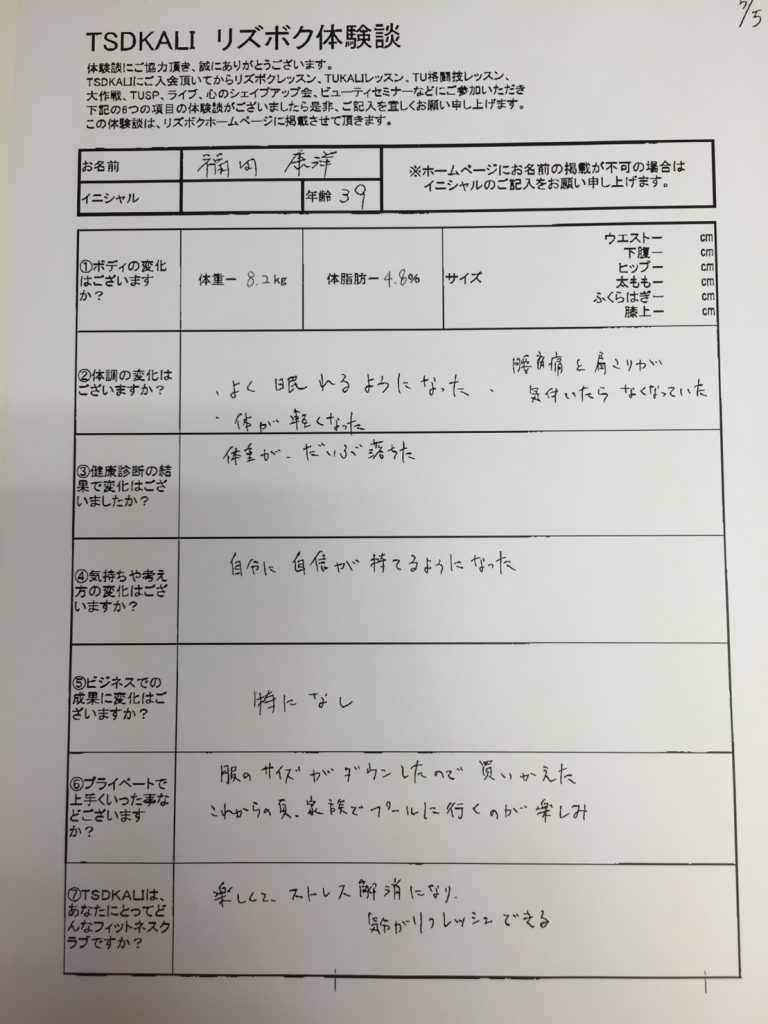 7/5
TSDKALI リズボク体験談
体験談にご協力頂き、誠にありがとうございます。
TSDKALIにご入会頂いてからリズボクレッスン、TUKALIレッスン、TU格闘技レッスン、
大作戦、TUSP、ライブ、心のシェイプアップ会、ビューティセミナーなどにご参加いただき
下記の6つの項目の体験談がございましたら是非、ご記入を宜しくお願い申し上げます。
この体験談は、リズボクホームページに掲載させて頂きます。
お名前 福田 康洋
イニシャル
年齢 39
※ホームページにお名前の掲載が不可の場合は
イニシャルのご記入をお願い申し上げます。
①ボディの変化
はございます
か？
体重ー 8.2kg
体脂肪ー 4.8%
サイズ
ウエストー cm
下腹ー cm
ヒップー cm
太ももー cm
ふくらはぎー cm
膝上ー cm
②体調の変化は
ございますか？
・よく眠れるようになった
・体が軽くなった
・腰背痛と肩こりが
気付いたらなくなっていた
③健康診断の結
果で変化はござ
いましたか？
体重が、だいぶ落ちた
④気持ちや考え
方の変化はござ
いますか？
自分に自信が持てるようになった
⑤ビジネスでの
成果に変化はご
ざいますか？
特になし
⑥プライベートで
上手くいった事な
どございます
か？
服のサイズがダウンしたので買いかえた
これからの夏、家族でプールに行くのが楽しみ
⑦TSDKALIは、
あなたにとってど
んなフィットネスク
ラブですか？
楽しくて、ストレス解消になり、
気分がリフレッシュできる